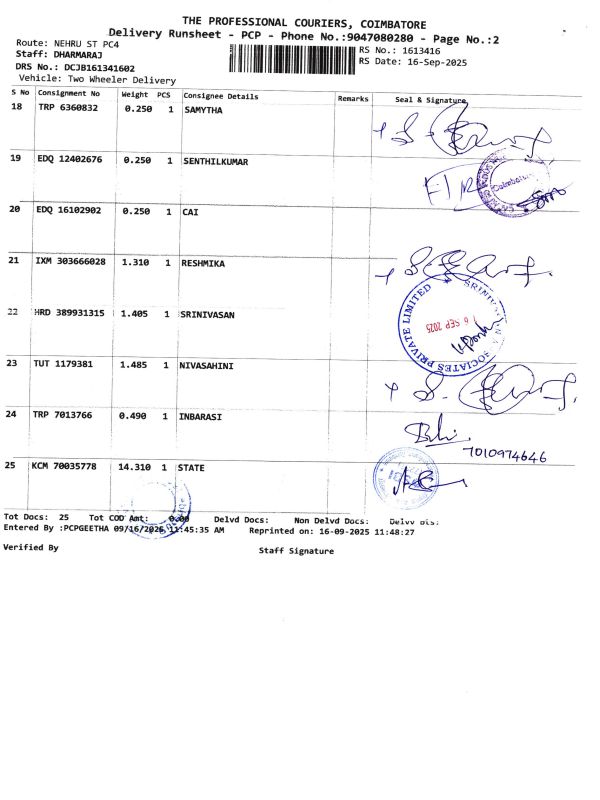 THE PROFESSIONAL COURIERS, COIMBATORE
Delivery Runsheet - PCP - Phone No.:9047080280 - Page No.:2
Route: NEHRU ST PC4
RS No.: 1613416
Staff: DHARMARAJ
RS Date: 16-Sep-2025
DRS No.: DCJB161341602
Vehicle: Two Wheeler Delivery
S No Consignment No Weight PCS Consignee Details Remarks Seal & Signature
18 TRP 6360832 0.250 1 SAMYTHA
19 EDQ 12402676 0.250 1 SENTHILKUMAR
Coimbatore
20 EDQ 16102902 0.250 1 CAI
21 IXM 303666028 1.310 1 RESHMIKA
22 HRD 389931315 1.405 1 SRINIVASAN
PRIVATE LIMITED
6 SEP 2025
23 TUT 1179381 1.485 1 NIVASAHINI
24 TRP 7013766 0.490 1 INBARASI
7010974646
25 KCM 70035778 14.310 1 STATE
Tot Docs: 25 Tot COD Amt: 0.00 Delvd Docs: Non Delvd Docs:
Entered By :PCPGEETHA 09/16/2025 11:45:35 AM Reprinted on: 16-09-2025 11:48:27
Verified By
Staff Signature